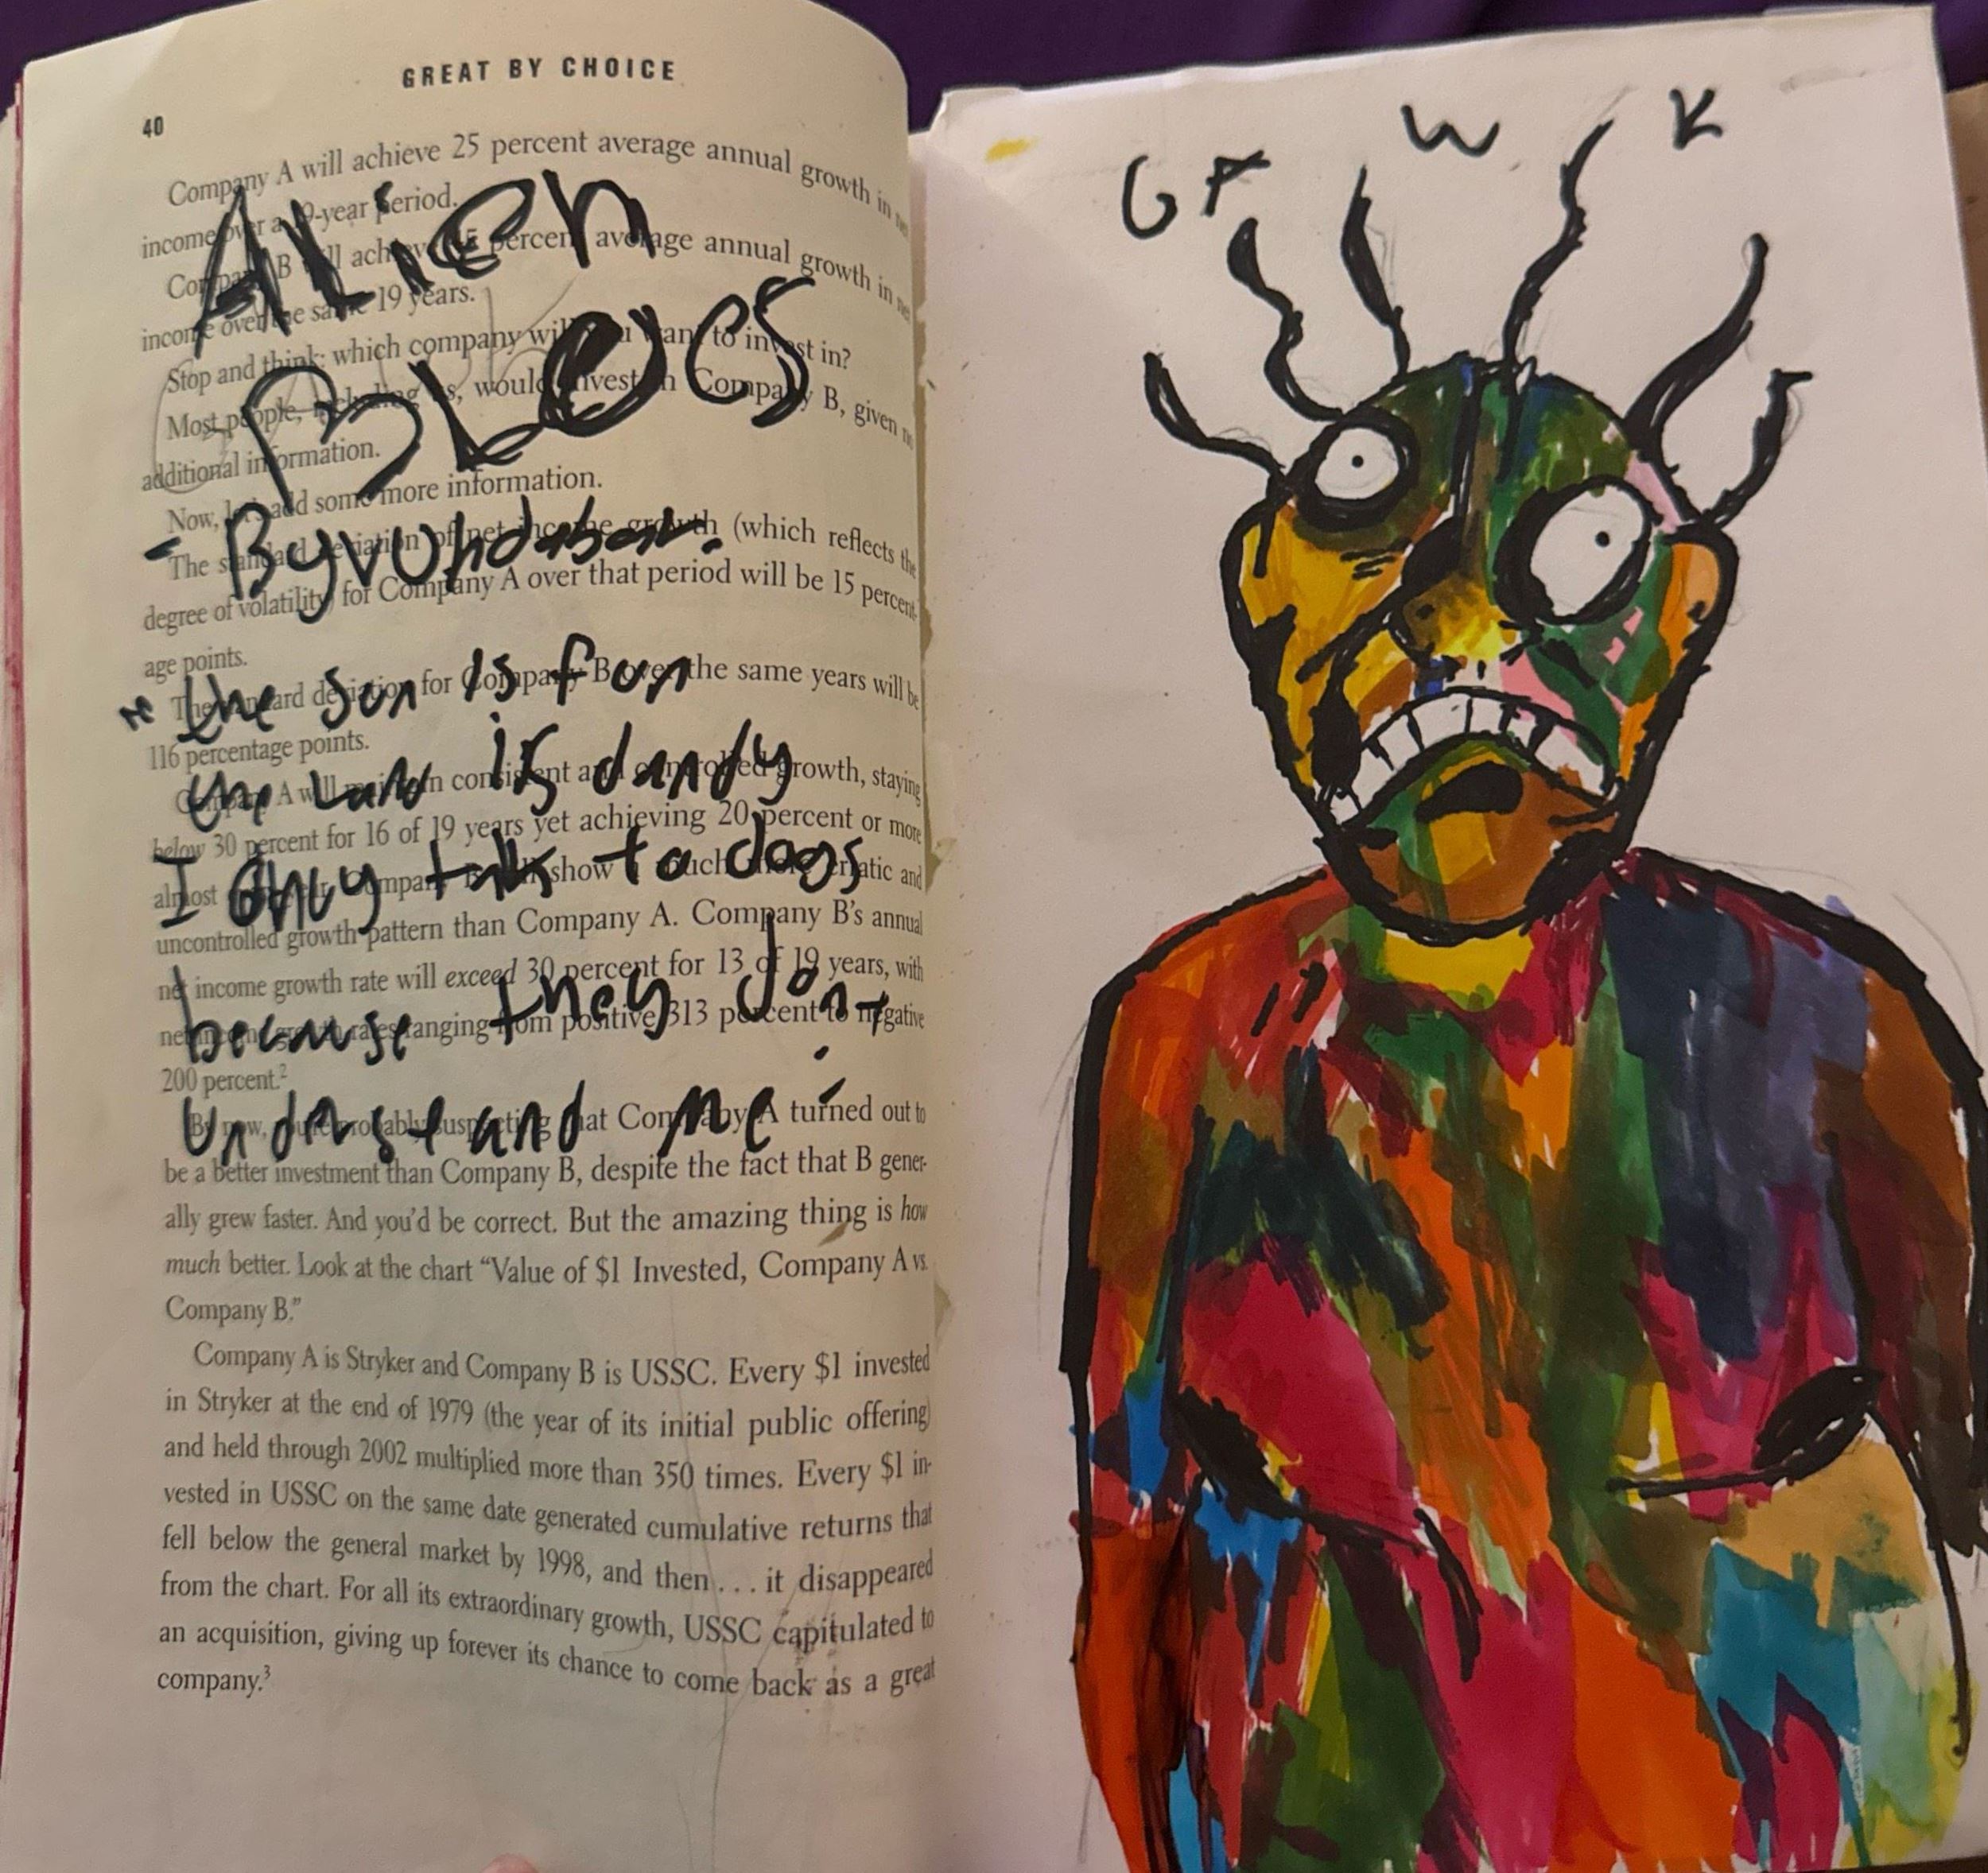 GREAT BY CHOICE
40
Company A will achieve 25 percent average annual growth in
income over a 19-year period.
Company B will achieve 45 percent average annual growth in
income over the same 19 years.
Stop and think: which company will you want to invest in?
Most people, including us, would invest in Company B, given
additional information.
Now, let's add some more information.
The standard deviation of net income growth (which reflects the
degree of volatility) for Company A over that period will be 15 percent-
age points.
The standard deviation for Company B over the same years will be
116 percentage points.
Company A will maintain consistent and controlled growth, staying
below 30 percent for 16 of 19 years yet achieving 20 percent or more
almost Company show much more erratic and
uncontrolled growth pattern than Company A. Company B's annual
net income growth rate will exceed 30 percent for 13 of 19 years, with
net income growth rates ranging from positive 313 percent to negative
200 percent.2
By now, you're probably suspecting that Company A turned out to
be a better investment than Company B, despite the fact that B gener-
ally grew faster. And you'd be correct. But the amazing thing is how
much better. Look at the chart "Value of $1 Invested, Company A vs.
Company B."
Company A is Stryker and Company B is USSC. Every $1 invested
in Stryker at the end of 1979 (the year of its initial public offering)
and held through 2002 multiplied more than 350 times. Every $1 in-
vested in USSC on the same date generated cumulative returns that
fell below the general market by 1998, and then . . . it disappeared
from the chart. For all its extraordinary growth, USSC capitulated to
an acquisition, giving up forever its chance to come back as a great
company.3
ALien
BLeUCS
- By vOhdabar.
" the sun is fun
the land is dandy
I Only talk to dogs
because they don't
Understand me. "
W K